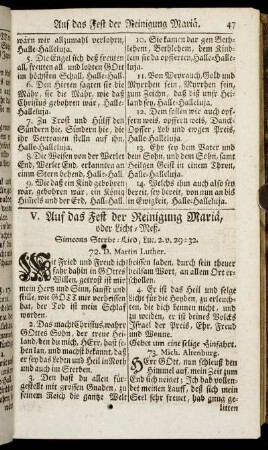 Auf das Fest der Reinigung Mariä. 47
wärn wir allzumahl verlohrn,
Halle-Halleluja.
5. Die Engel sich deß freuten
all, freuten all, und lobten GOtt
im höchsten Schall, Halle-Hall.
6. Den Hirten sagten sie die
Mähr, sie die Mähr, wie daß
Christus gebohren wär, Halle-
Halleluja.
7. Zu Trost und Hülff den
Sündern hie, Sündern hie, die
der Verheissung trösten
auf ihn, Halle-Halleluja.
8. Die Weisen von der Welt
End, Welt Ende, erkannten an
einem Stern behend, Halle-Hall.
9. Wie daß ein Kind gebohren
wär, gebohren wär, ein König
Himels und der Erd, Halle-Hall.
10. Sie kamen dar gen Beth-
lehem, Bethlehem, dem Kind-
lein sie da opfferten, Halle-Halle-
luja.
11. Von Weyrauch, Gold und
Myrrhen fein, Myrrhen fein,
bekannten, daß diß unser Hei-
land sey, Halle-Halleluja.
12. Dem sollen wir Danck-
opffers weis, opffers weis, Danck-
opffer, Lob und ewgen Preis,
Halle-Halleluja.
13. Ehr sey dem Vater und
dem Sohn, und dem Sohn, samt
Heilgen Geist in einem Thron,
Halle-Halleluja.
14. Welchs ihm auch also sey
bereit, sey bereit, von nun an biß
in Ewigkeit, Halle-Halleluja.
V. Auf das Fest der Reinigung Mariä,
oder Licht-Meß.
Simeons Sterbe-Lied, Luc. 2. v. 29-32.
72. D. Martin Luther.
Mit Fried und Freud ich
fahr dahin in GOttes
Willen, getrost ist mir
mein Hertz und Sinn, sanfft und
stille, wie GOtt mir verheissen
hat, der Tod ist mein Schlaf
worden.
2. Das macht Christus, wahrer
GOttes Sohn, der treue Hei-
land, den du mich, HErr, hast se-
hen lan, und machst bekannt, daß
er sey das Leben und Heil in Noth
und auch im Sterben.
3. Den hast du allen für-
gestellt mit grossen Gnaden, zu
seinem Reich die gantze Welt
heissen laden, durch sein theuer
heilsam Wort, an allem Ort er-
schollen.
4. Er ist das Heil und selge
Licht für die Heyden, zu erleuch-
ten, die dich kennen nicht, und zu
weiden, er ist deines Volcks
Israel der Preis, Ehr, Freud
und Wonne.
Gebet um eine selige Hinfahrt.
73. Mich. Altenburg.
HErr GOtt, nun schleuß den
Himmel auf, mein Zeit zum
End sich neiget; Ich hab vollen-
det meinen Lauff, deß sich mein
Seel sehr freuet, hab gnug ge-
litten